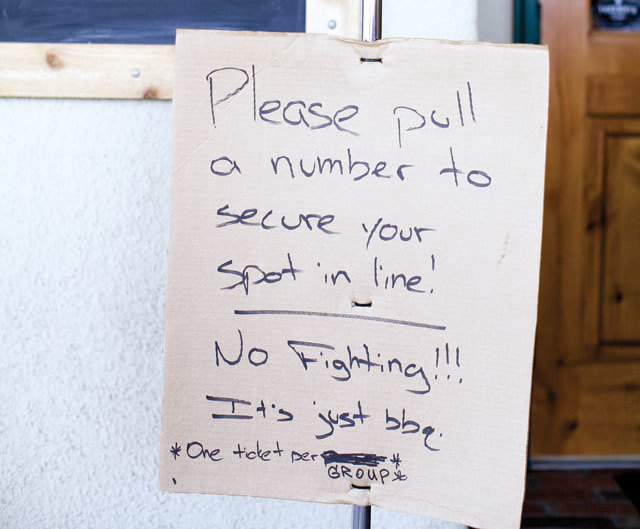 Please pull
a number to
secure your
spot in line!
No Fighting!!!
It's just bbq.
*One ticket per *
GROUP*